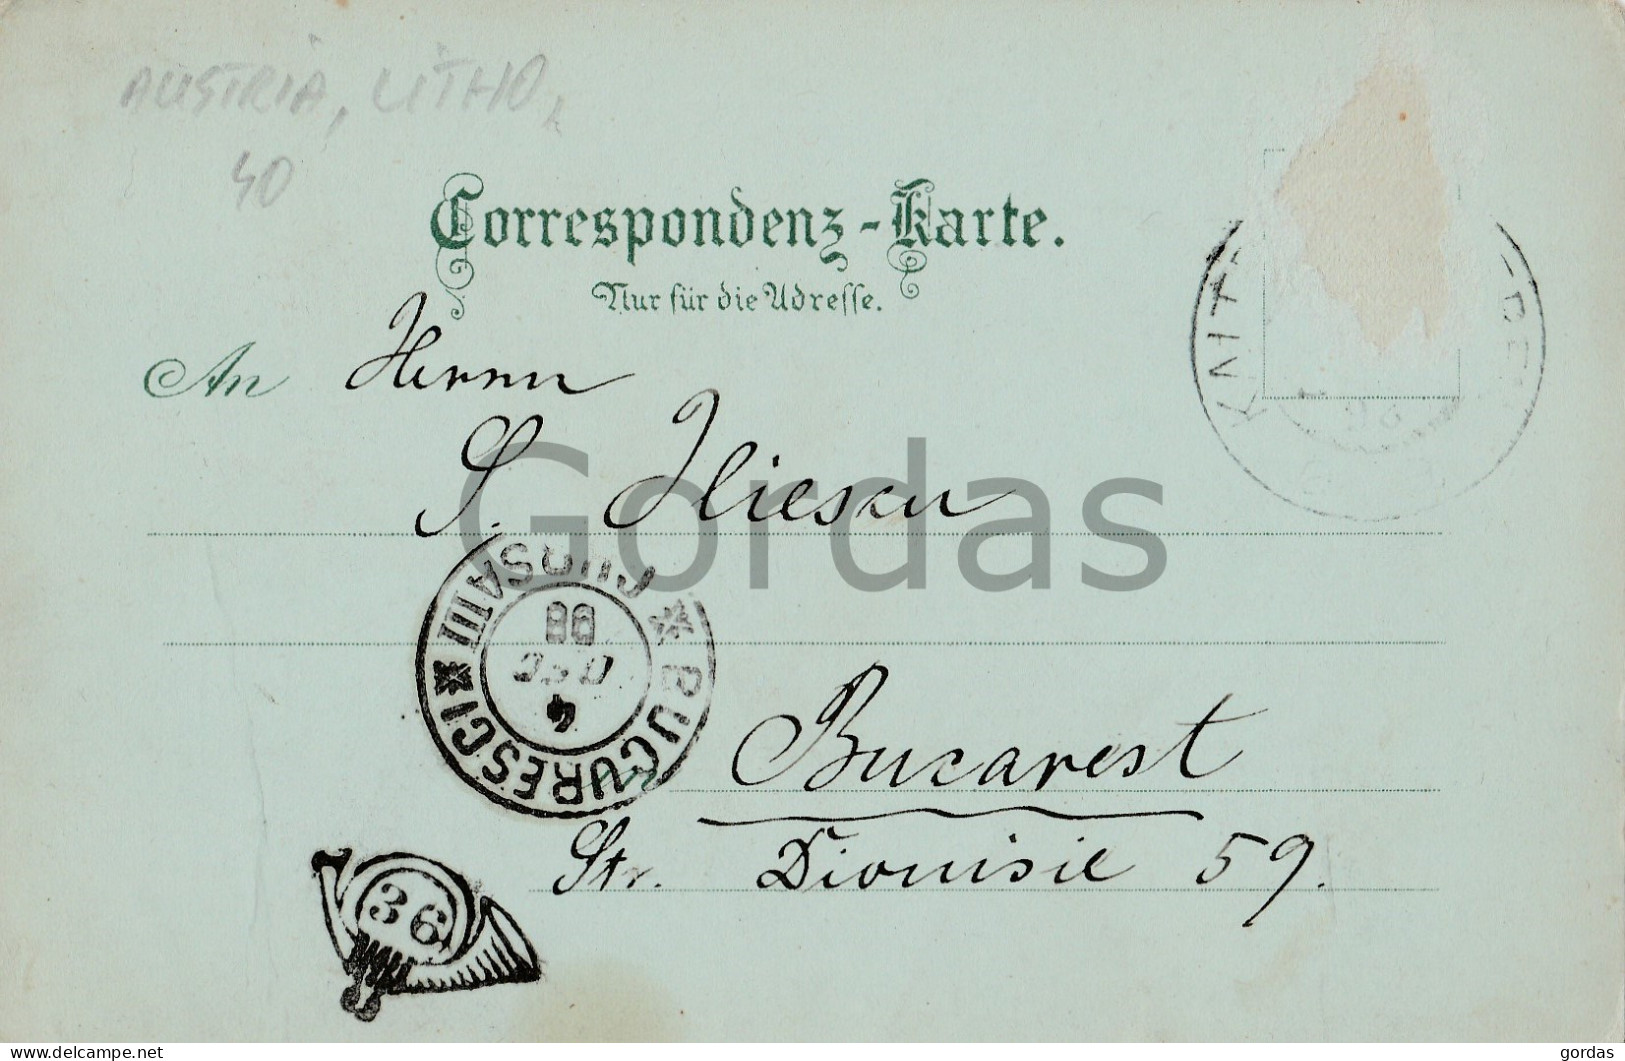 AUSTRIA, LITHO,
40
Correspondenz-Karte.
Nur für die Adresse.
An Herrn
S. Iliescu
Gordas
BUCURESCI
4 DEC 98
36
Bucarest
Str. Dionisie 59.
delcampe.net
gordas